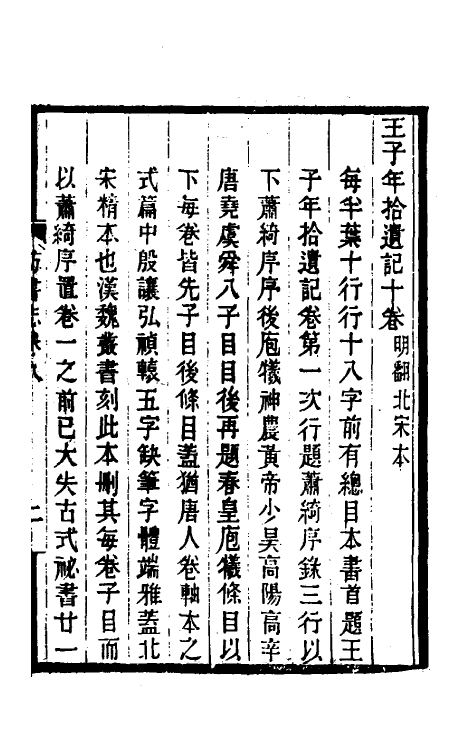 王子年拾遺記十卷 明翻北宋本
每半葉十行行十八字前有總目本書首題王
子年拾遺記卷第一次行題蕭綺序錄三行以
下蕭綺序序後庖犧神農黃帝少昊高陽高辛
唐堯虞舜八子目目後再題春皇庖犧條目以
下每卷皆先子目後條目蓋猶唐人卷軸本之
式篇中殷讓弘禎轅五字缺筆字體端雅蓋北
宋精本也漢魏叢書刻此本刪其每卷子目而
以蕭綺序置卷一之前已大失古式祕書廿一